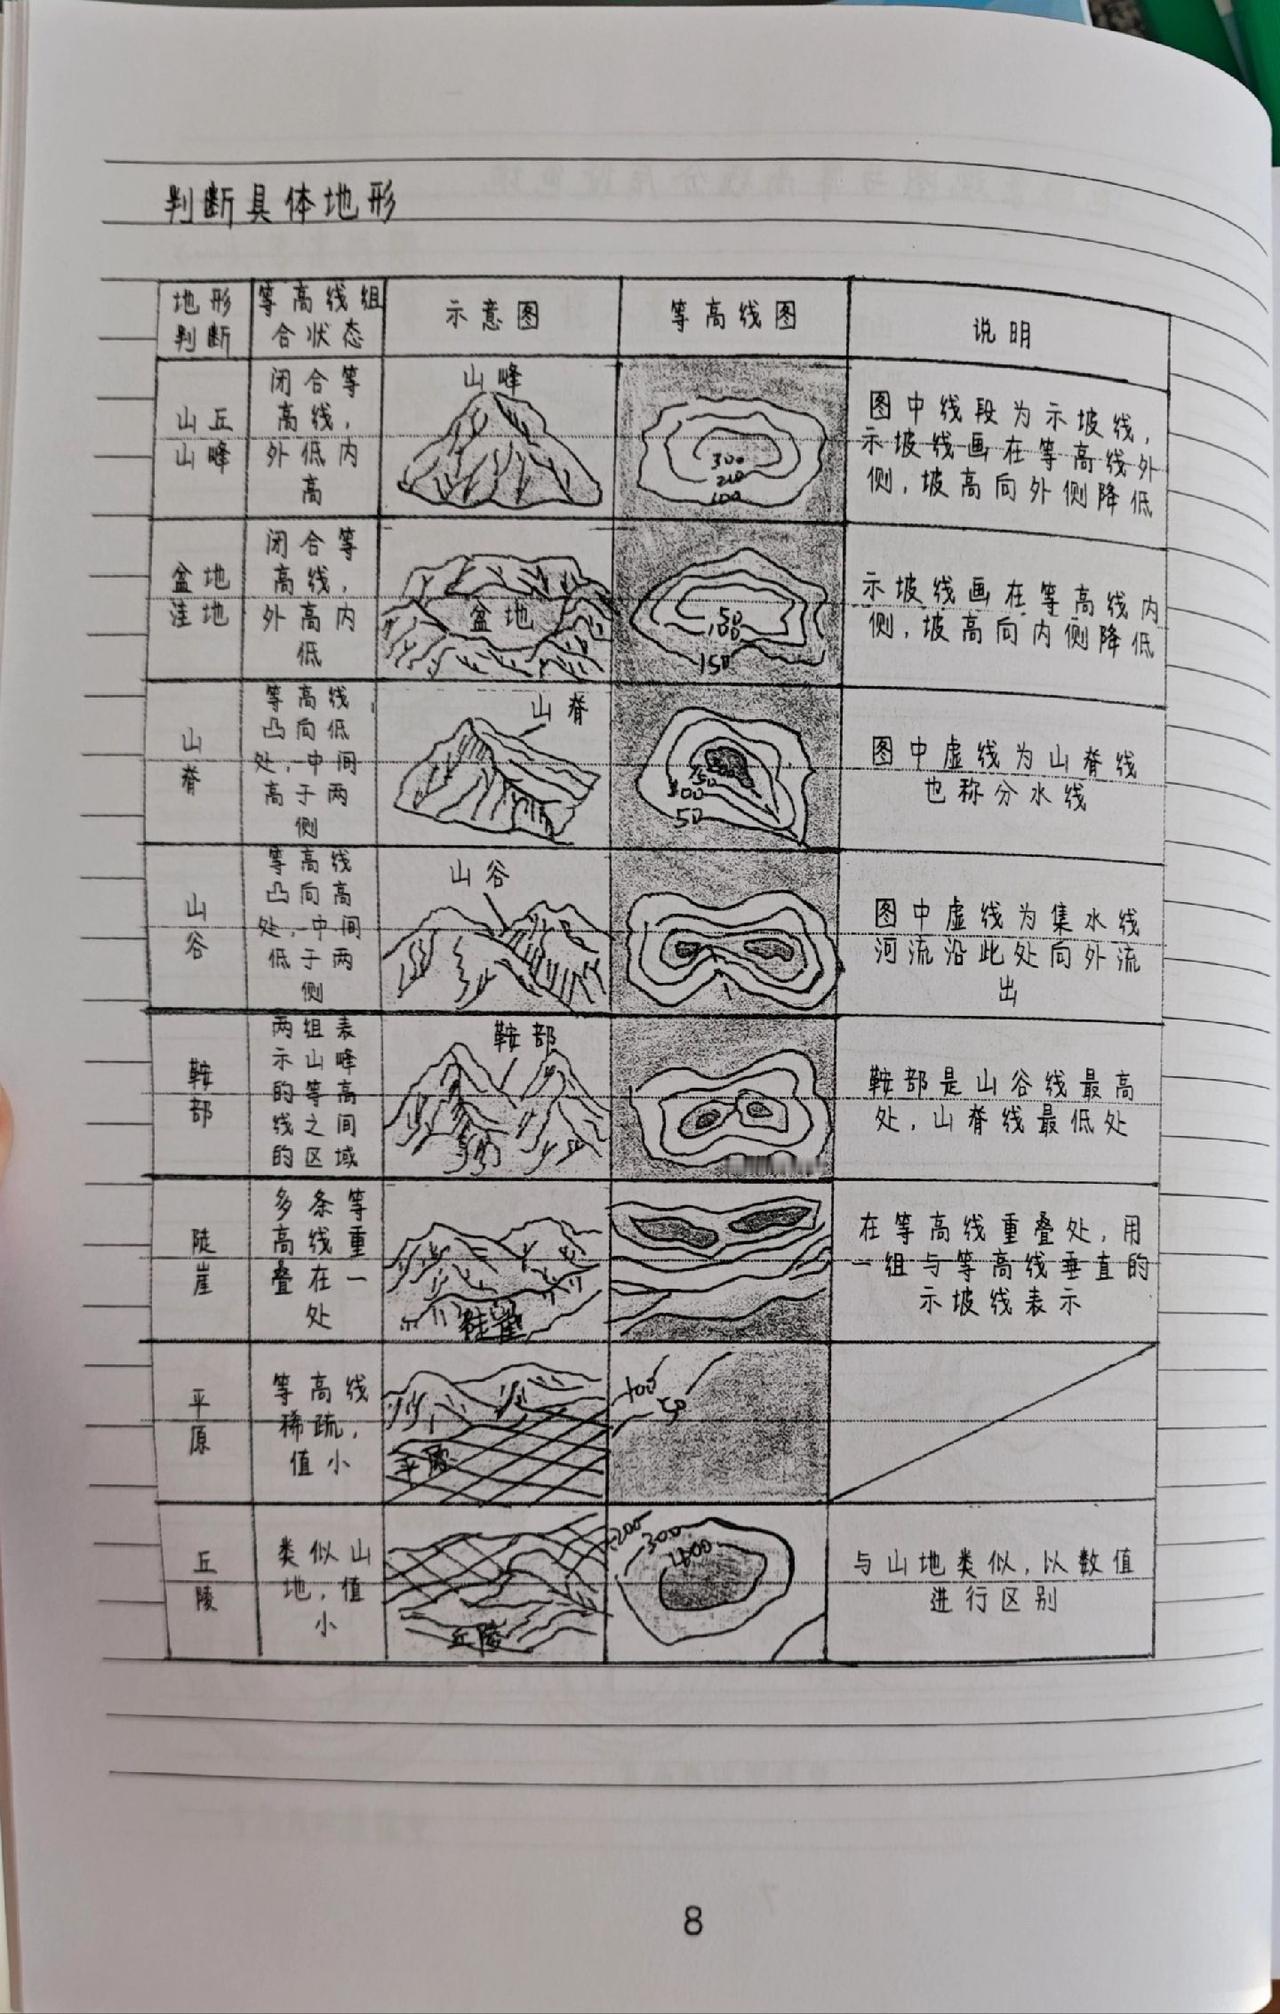 判断具体地形
地形
判断
等高线组
合状态
示意图
等高线图
说明
山丘
山峰
闭合等
高线，
外低内
高
山峰
300
200
100
图中线段为示坡线，
示坡线画在等高线外
侧，坡高向外侧降低
盆地
洼地
闭合等
高线，
外高内
低
盆地
50
100
150
示坡线画在等高线内
侧，坡高向内侧降低
山
脊
等高线
凸向低
处，中间
高于两
侧
山脊
50
图中虚线为山脊线
也称分水线
山
谷
等高线
凸向高
处，中间
低于两
侧
山谷
图中虚线为集水线
河流沿此处向外流
出
鞍
部
两组表
示山峰
的等高
线之间
的区域
鞍部
鞍部是山谷线最高
处，山脊线最低处
陡
崖
多条等
高线重
叠在一
处
陡崖
在等高线重叠处，用
一组与等高线垂直的
示坡线表示
平
原
等高线
稀疏，
值小
平原
100
50
丘
陵
类似山
地，值
小
丘陵
200
300
与山地类似，以数值
进行区别
8